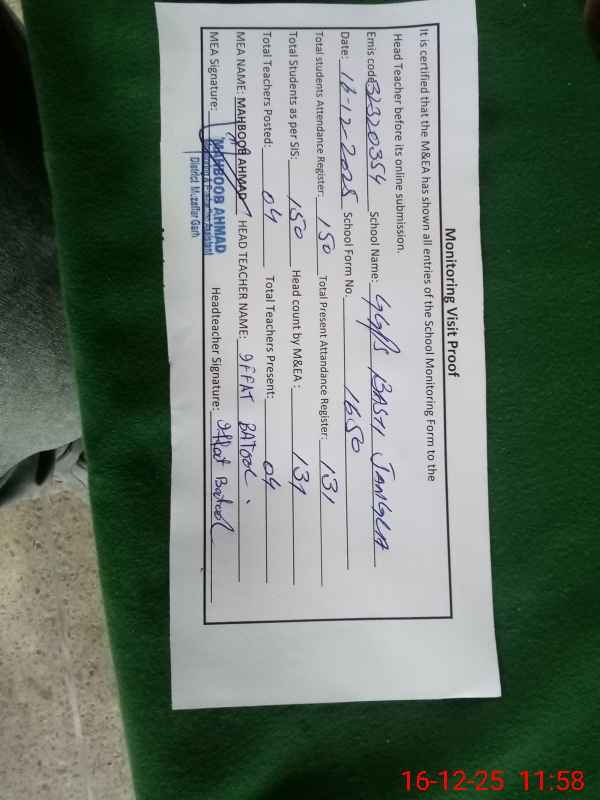 Monitoring Visit Proof
It is certified that the M&EA has shown all entries of the School Monitoring Form to the
Head Teacher before its online submission.
Emis code: 32320354 School Name: GGPS BASTI JANGLA
Date: 16-12-2025 School Form No. 1650
Total students Attendance Register: 150 Total Present Attandance Register: 131
Total Students as per SIS: 150 Head count by M&EA: 131
Total Teachers Posted: 04 Total Teachers Present: 04
MEA NAME: MAHBOOB AHMAD HEAD TEACHER NAME: IFFAT BATOOL.
MEA Signature: Headteacher Signature: Iffat Batool
MAHBOOB AHMAD
Monitoring & Evaluation Assistant
District Muzaffar Garh
16-12-25 11:58